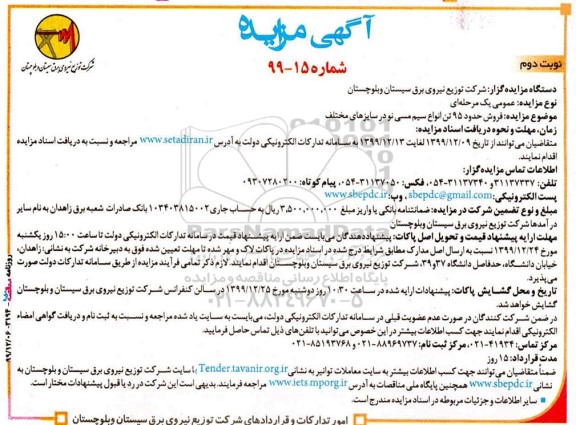 آگهی مزایده
شماره ۱۵-۹۹
نوبت دوم
شرکت توزیع نیروی برق سیستان و بلوچستان
دستگاه مزایده گزار: شرکت توزیع نیروی برق سیستان وبلوچستان
نوع مزایده: عمومی یک مرحله‌ای
موضوع مزایده: فروش حدود ۹۵ تن انواع سیم مسی نو در سایزهای مختلف
زمان، مهلت و نحوه دریافت اسناد مزایده:
متقاضیان می‌توانند از تاریخ ۱۳۹۹/۱۲/۰۹ لغایت ۱۳۹۹/۱۲/۱۳ به سامانه تدارکات الکترونیکی دولت به آدرس www.setadiran.ir مراجعه و نسبت به دریافت اسناد مزایده
اقدام نمایند.
اطلاعات تماس مزایده گزار:
تلفن: ۳۱۱۳۷۳۳۷ و ۳۱۱۳۷۳۴۰-۰۵۴، فکس: ۳۱۱۳۷۰۵۰-۰۵۴، پیام کوتاه: ۰۹۳۰۷۲۸۰۲۰۰
پست الکترونیکی: sbepdc@gmail.com، وب: www.sbepdc.ir
مبلغ و نوع تضمین شرکت در مزایده: ضمانتنامه بانکی یا واریز مبلغ ۳,۵۰۰,۰۰۰,۰۰۰ ریال به حساب جاری ۱۰۳۴۰۳۸۱۵۰۰۲ بانک صادرات شعبه برق زاهدان به نام سایر
درآمدها شرکت توزیع نیروی برق سیستان وبلوچستان
مهلت ارایه پیشنهاد قیمت و تحویل اصل پاکات: پیشنهاددهندگان می‌بایست ضمن ارایه پیشنهاد قیمت در سامانه تدارکات الکترونیکی دولت تا ساعت ۱۵:۰۰ روز یکشنبه
مورخ ۱۳۹۹/۱۲/۲۴ نسبت به ارسال اصل مدارک مطابق شرایط درج شده در اسناد مزایده در پاکات لاک و مهر شده تا مهلت تعیین شده فوق به دبیرخانه شرکت به نشانی: زاهدان،
خیابان دانشگاه، حدفاصل دانشگاه ۳۷و۳۹، شرکت توزیع نیروی برق سیستان وبلوچستان اقدام نمایند. لازم ذکر تمامی فرآیند مزایده از طریق سامانه تدارکات دولت صورت
می‌پذیرد.
تاریخ و محل گشایش پاکات: پیشنهادات ارایه شده در ساعت ۱۰:۳۰ روز دوشنبه مورخ ۱۳۹۹/۱۲/۲۵ در سالن کنفرانس شرکت توزیع نیروی برق سیستان وبلوچستان
گشایش خواهد شد.
در ضمن شرکت کنندگان در صورت عدم عضویت قبلی در سامانه تدارکات الکترونیکی دولت، می‌بایست به سایت یاد شده مراجعه و نسبت به ثبت نام و دریافت گواهی امضاء
الکترونیکی اقدام نمایند جهت کسب اطلاعات بیشتر در این خصوص می‌توانید با تلفن‌های ذیل تماس حاصل فرمایید.
مرکز تماس: ۴۱۹۳۴-۰۲۱، مرکز ثبت نام: ۸۸۹۶۹۷۳۷-۰۲۱ و ۸۵۱۹۳۷۶۸-۰۲۱
مدت قرارداد: ۱۵ روز
ضمناً متقاضیان می‌توانند جهت کسب اطلاعات بیشتر به سایت معاملات توانیر به نشانی Tender.tavanir.org.ir یا سایت شرکت توزیع نیروی برق سیستان و بلوچستان به
نشانی www.sbepdc.ir همچنین پایگاه ملی مناقصات به آدرس www.iets.mporg.ir مراجعه فرمایند. بدیهی است این شرکت در رد یا قبول پیشنهادات مختار است.
• سایر اطلاعات و جزئیات مربوطه در اسناد مزایده مندرج است.
امور تدارکات و قراردادهای شرکت توزیع نیروی برق سیستان وبلوچستان
پایگاه اطلاع رسانی مناقصه و مزایده
۰۲۱-۸۸۳۴۹۶۷۰-۵